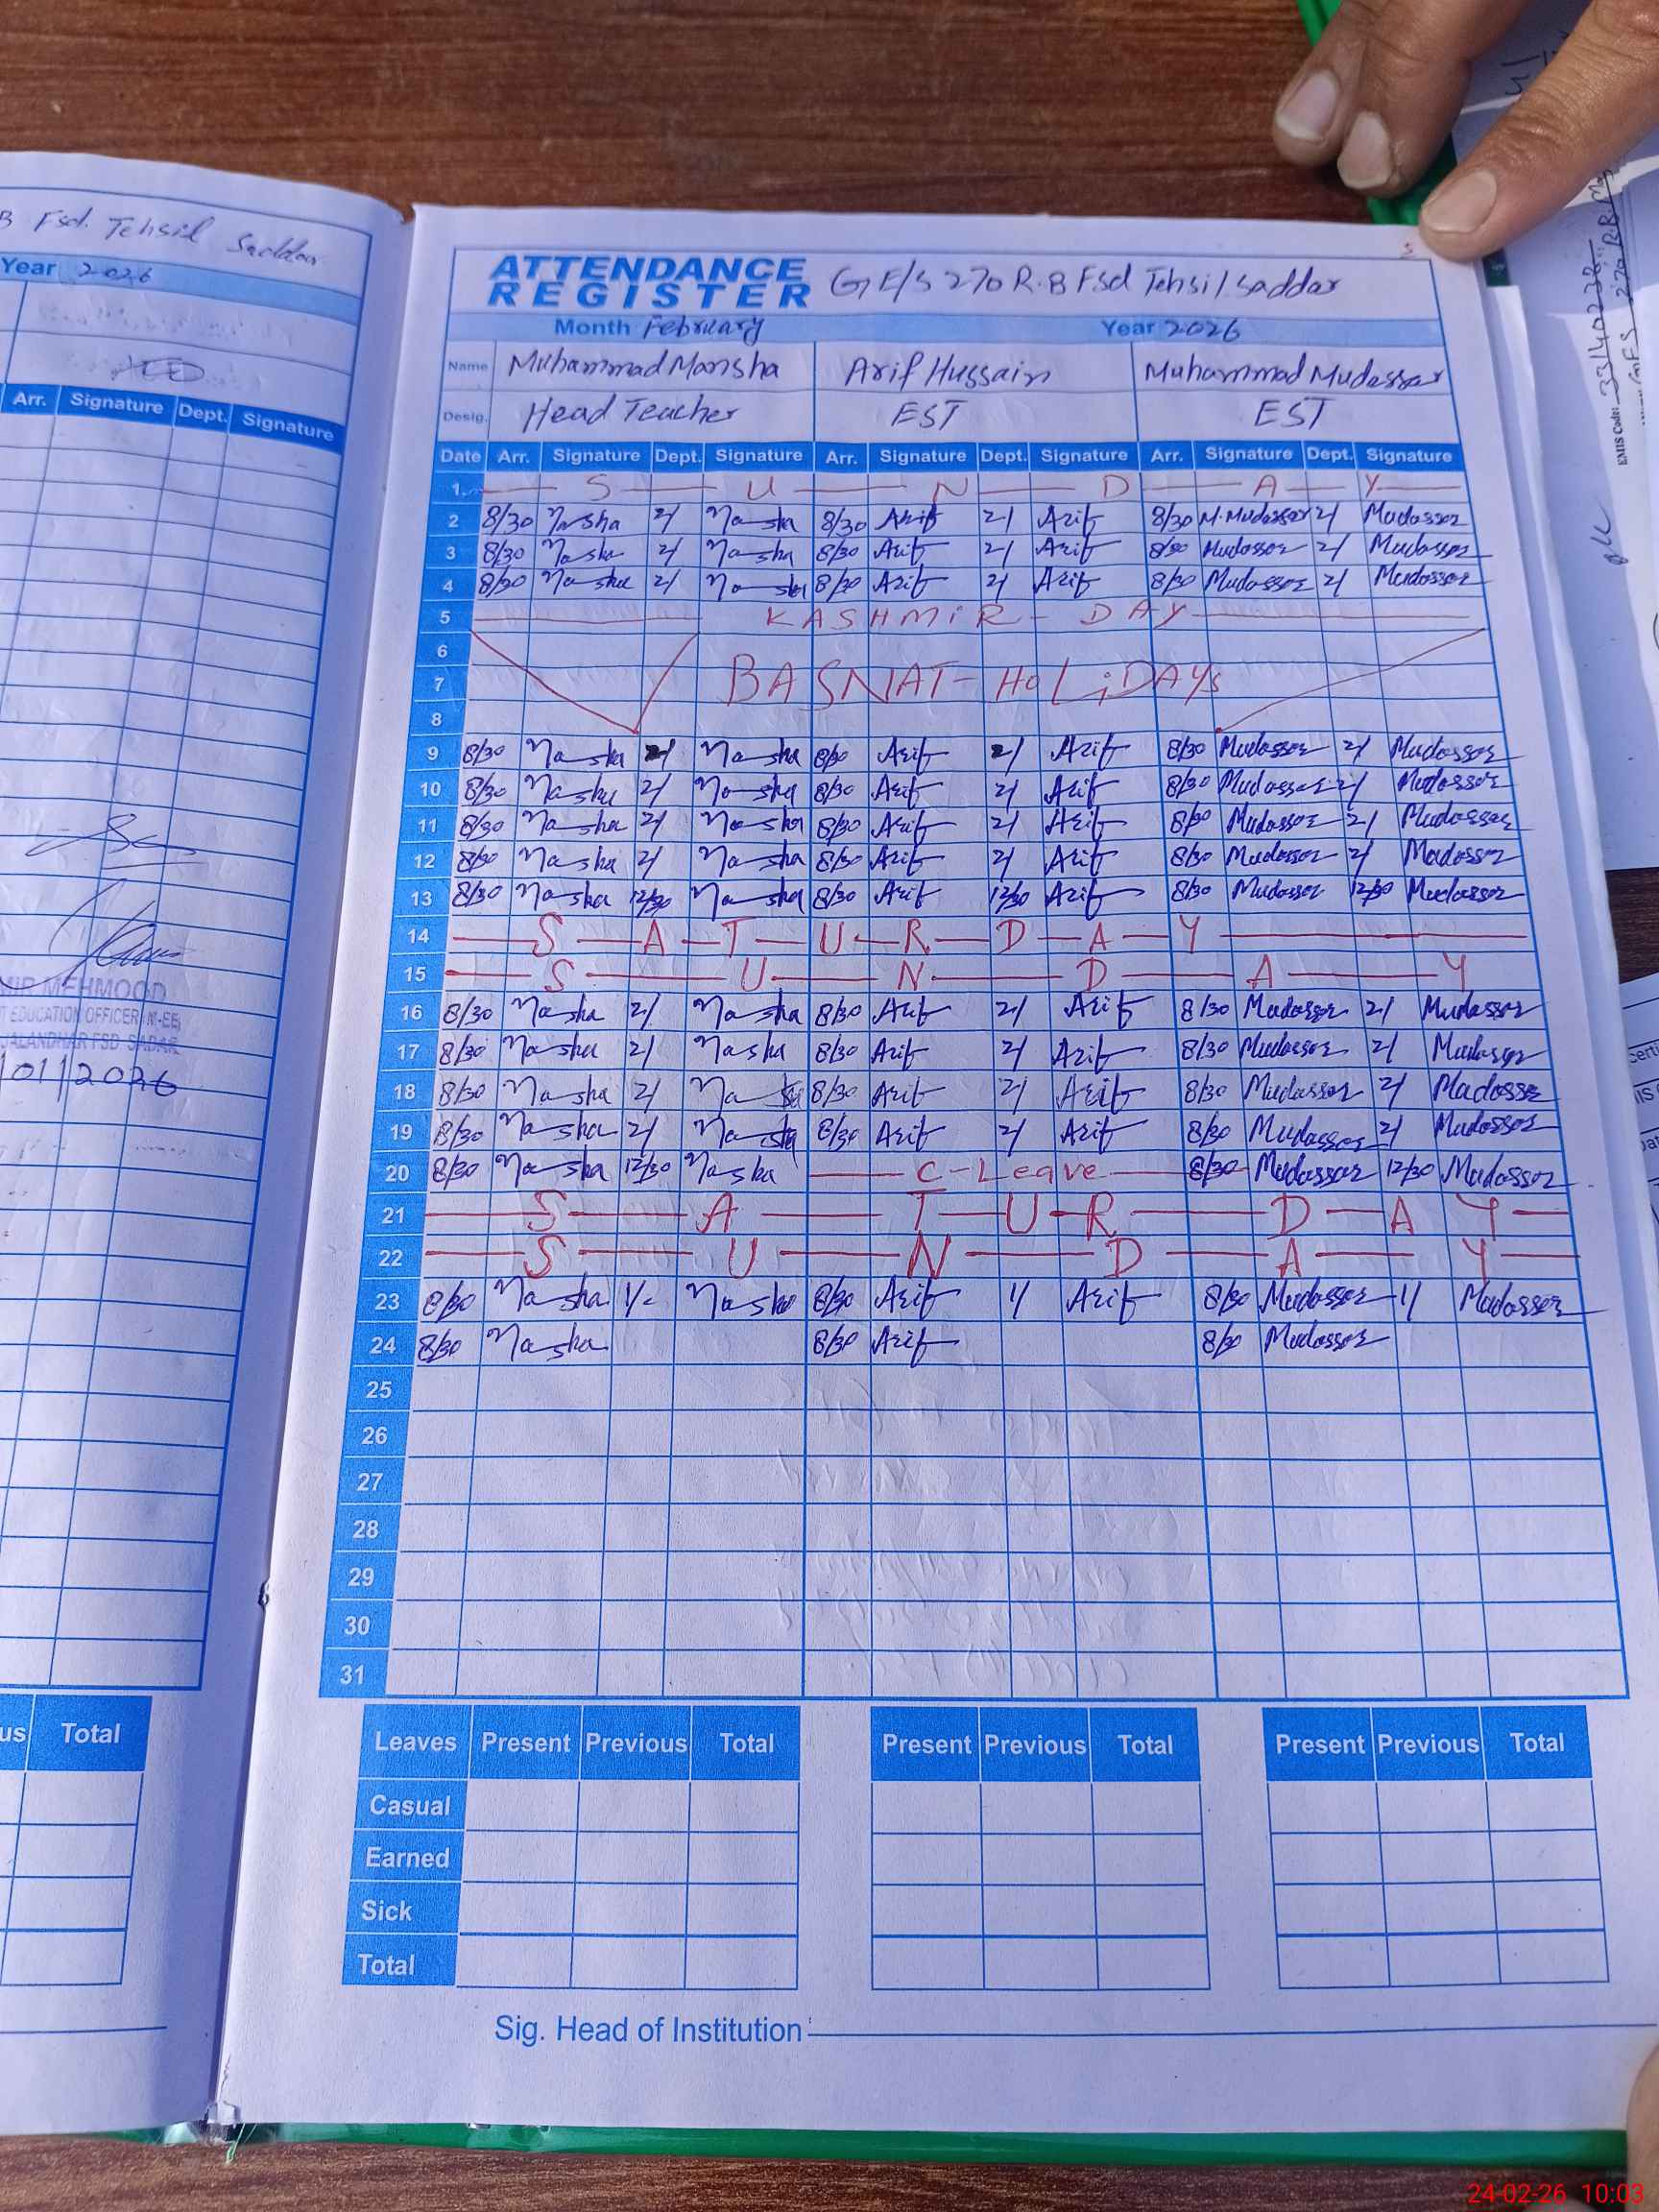 B Fsd. Tehsil Saddar
Year 2026
Arr. Signature Dept. Signature
EDUCATION OFFICER M-EE
JALANDHAR FSD SADAR
01/2026
us Total
ATTENDANCE REGISTER G E/S 270 R.B Fsd Tehsil Saddar
Month February Year 2026
Name Muhammad Mansha Arif Hussain Muhammad Mudassar
Desig. Head Teacher EST EST
Date Arr. Signature Dept. Signature Arr. Signature Dept. Signature Arr. Signature Dept. Signature
1 S U N D A Y
2 8/30 Mansha 2/ Mansha 8/30 Arif 2/ Arif 8/30 M. Mudassar 2/ Mudassar
3 8/30 Mansha 2/ Mansha 8/30 Arif 2/ Arif 8/30 Mudassar 2/ Mudassar
4 8/30 Mansha 2/ Mansha 8/30 Arif 2/ Arif 8/30 Mudassar 2/ Mudassar
5 KASHMIR - DAY
6
7 BASNAT - HOLiDAYS
8
9 8/30 Mansha 2/ Mansha 8/30 Arif 2/ Arif 8/30 Mudassar 2/ Mudassar
10 8/30 Mansha 2/ Mansha 8/30 Arif 2/ Arif 8/30 Mudassar 2/ Mudassar
11 8/30 Mansha 2/ Mansha 8/30 Arif 2/ Arif 8/30 Mudassar 2/ Mudassar
12 8/30 Mansha 2/ Mansha 8/30 Arif 2/ Arif 8/30 Mudassar 2/ Mudassar
13 8/30 Mansha 12/30 Mansha 8/30 Arif 12/30 Arif 8/30 Mudassar 12/30 Mudassar
14 S A T U R D A Y
15 S U N D A Y
16 8/30 Mansha 2/ Mansha 8/30 Arif 2/ Arif 8/30 Mudassar 2/ Mudassar
17 8/30 Mansha 2/ Mansha 8/30 Arif 2/ Arif 8/30 Mudassar 2/ Mudassar
18 8/30 Mansha 2/ Mansha 8/30 Arif 2/ Arif 8/30 Mudassar 2/ Mudassar
19 8/30 Mansha 2/ Mansha 8/30 Arif 2/ Arif 8/30 Mudassar 2/ Mudassar
20 8/30 Mansha 12/30 Mansha C-Leave 8/30 Mudassar 12/30 Mudassar
21 S A T U R D A Y
22 S U N D A Y
23 8/30 Mansha 1/- Mansha 8/30 Arif 1/ Arif 8/30 Mudassar 1/ Mudassar
24 8/30 Mansha 8/30 Arif 8/30 Mudassar
25
26
27
28
29
30
31
Leaves Present Previous Total Present Previous Total Present Previous Total
Casual
Earned
Sick
Total
Sig. Head of Institution
EMIS Code: 33140238
24-02-26 10:03